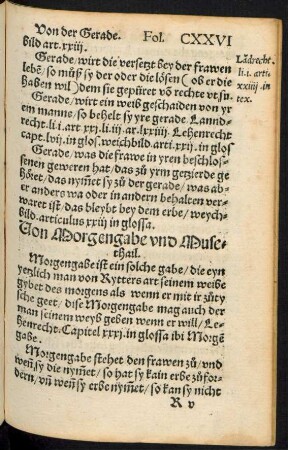 Von der Gerade. Fol. CXXVI
bild art. xxiij.
Gerade/ wirt die versetzt bey der frawen
lebē/ so muſʒ ſy der oder die löſen ( ob er die
haben wil) dem ſie gepüret vō rechte vt ſu.
Gerade/ wirt ein weib geſchaiden von yr
em manne/ ſo behelt ſy yre gerade. Lannd-
recht. li. i. art. xxj. li. iij. ar. lxxiiij. Lehenrecht
capt. lvij. in gloſ. weichbild. art. xxj. in gloſ
Gerade/ was die frawe in yren beſchloſ-
ſenen geweren hat/ das zů yrm getzierde ge
hőret/ das nym̄et ſy zů der gerade/ was ab-
er anders wa oder in andern behalten ver-
waret iſt/ das bleybt bey dem erbe/ weych-
bild. articulus xxiij in gloſſa.
Von Morgengabe vnd Muſe-
thail.
Morgengabe iſt ein ſolche gabe/ die eyn
yetzlich man von Rytters art ſeinem weibe
gybet des morgens als wenn er mit ir zů ty
ſche geet/ diſe Morgengabe mag auch der
man ſeinem weyb geben wenn er will/ Le-
henrecht. Capitel xxxj. in gloſſa ibi Morgē
gabe.
Morgengabe ſtehet den frawen zů/ vnd
weñ ſy die nym̄et/ ſo hat ſy kain erbe zů for-
dern/ vñ weñ ſy erbe nym̄et/ ſo kan ſy nicht
R v
Lādrecht.
li. i. arti.
xxiiij. in
tex.